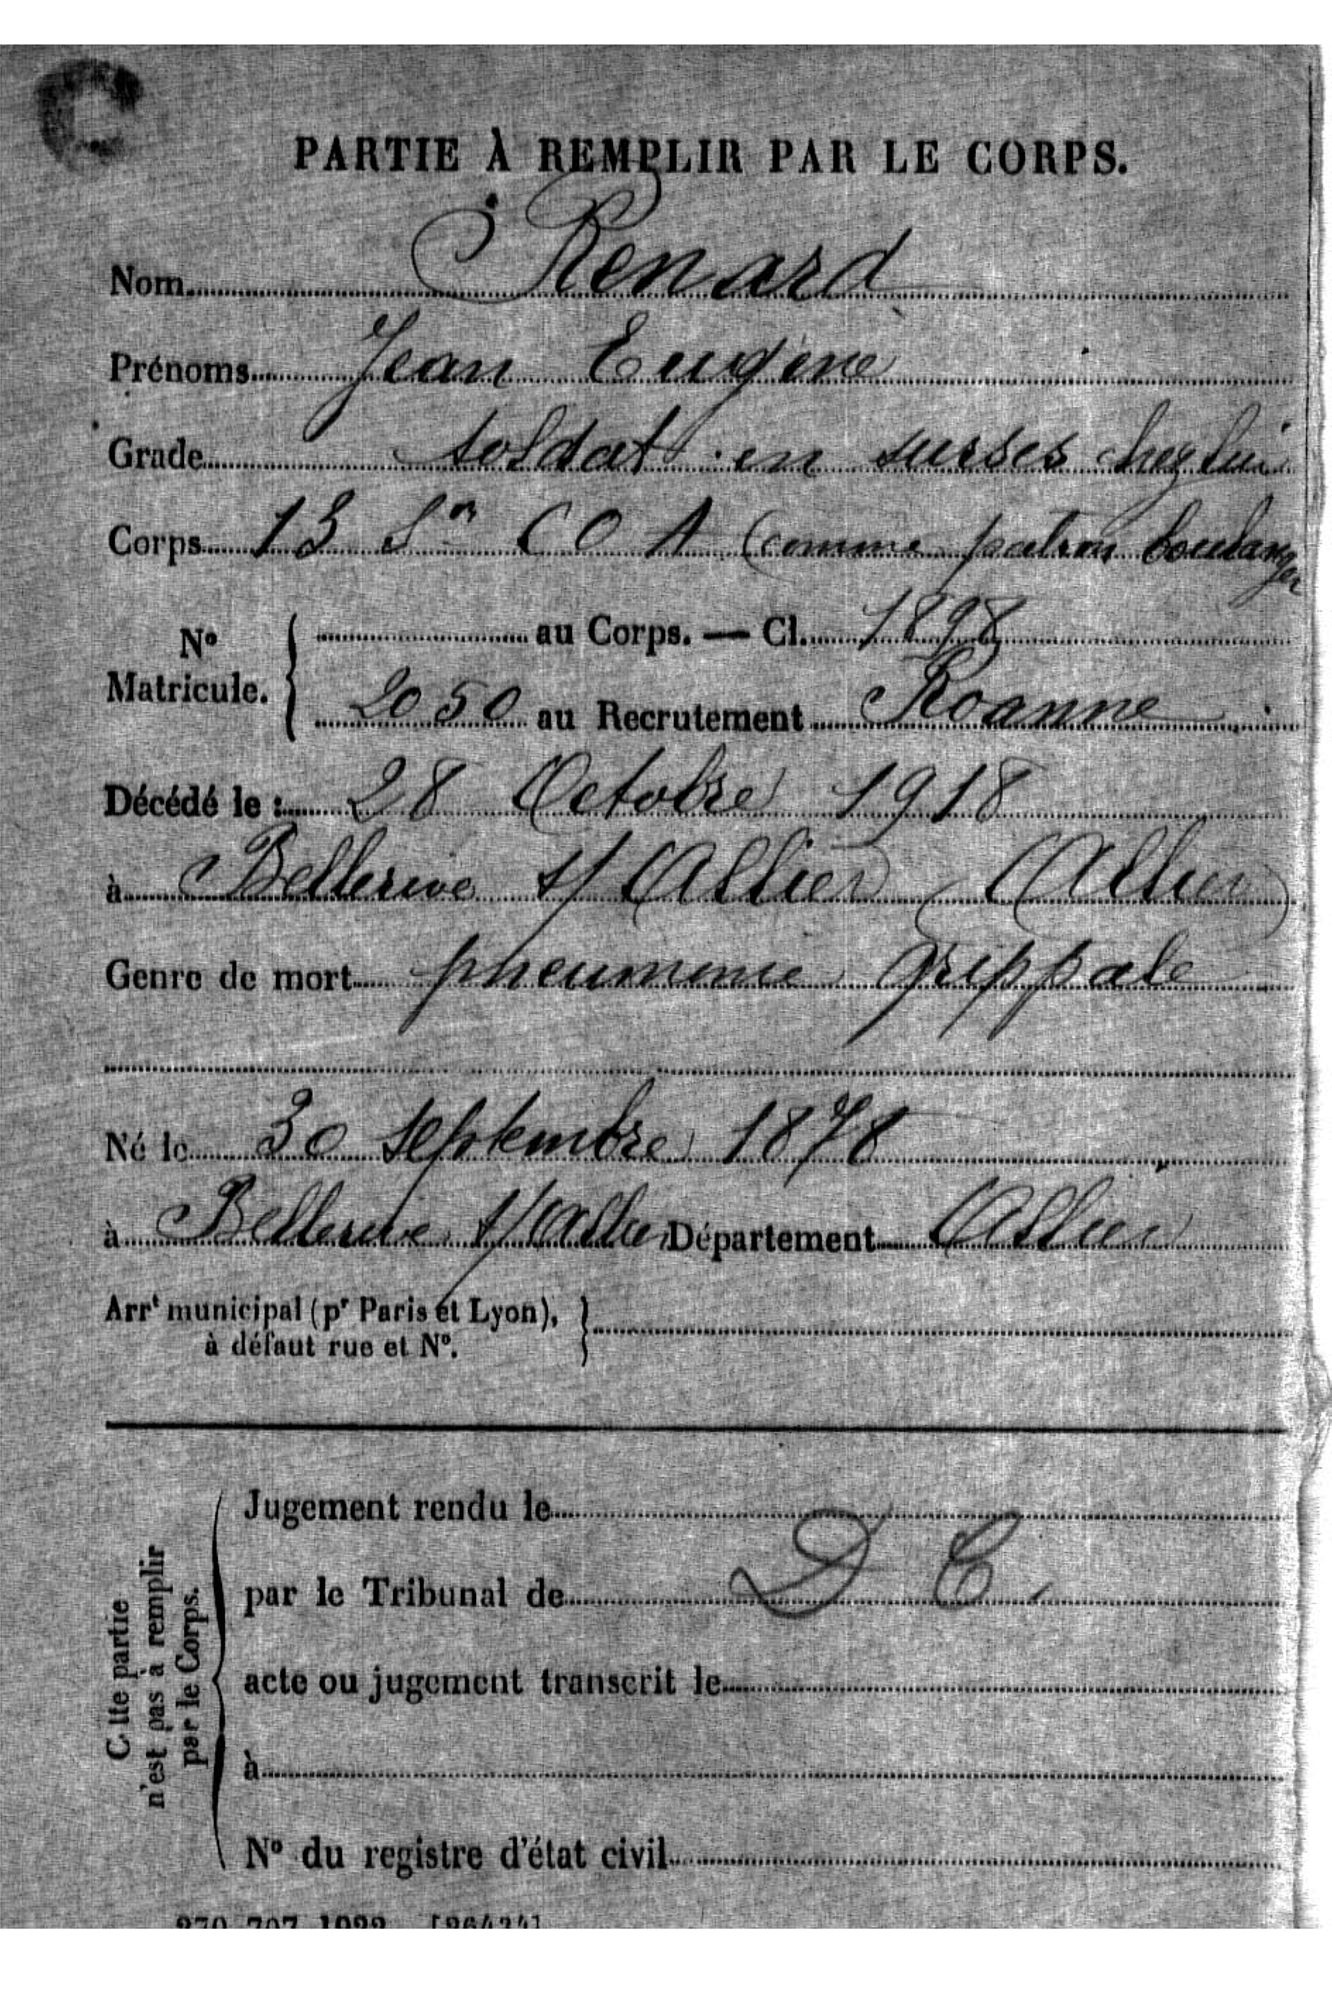 PARTIE À REMPLIR PAR LE CORPS.
Nom Renard
Prénoms Jean Eugène
Grade soldat en surses chez lui
Corps 13 Sᵒⁿ COA (comme patron boulanger
Nº Matricule. { au Corps. — Cl. 1898
2050 au Recrutement Roanne
Décédé le : 28 Octobre 1918
à Bellerive s/ Allier (Allier)
Genre de mort pneumonie grippale
Né le 30 septembre 1878
à Bellerive s/Allier Département Allier
Arrᵗ municipal (pʳ Paris et Lyon),
à défaut rue et Nº.
C tte partie
n'est pas à remplir
par le Corps.
Jugement rendu le
par le Tribunal de D C.
acte ou jugement transcrit le
à
Nº du registre d'état civil